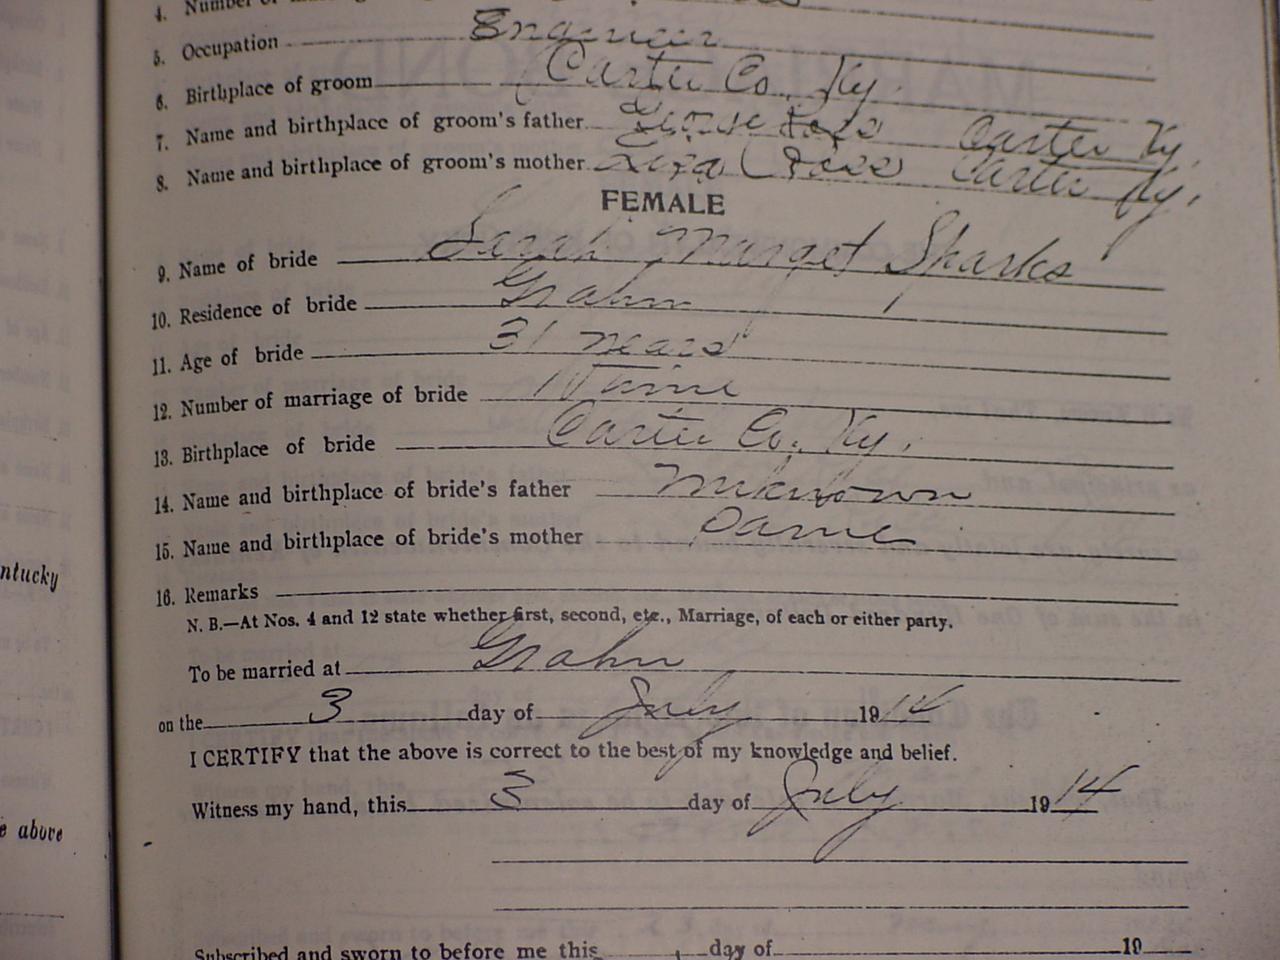 4. Number of
5. Occupation Engineer
6. Birthplace of groom Carter Co., Ky.
7. Name and birthplace of groom's father Ross Carter Ky.
8. Name and birthplace of groom's mother Liza Ross Carter Ky.
FEMALE
9. Name of bride Sarah Marget Sparks
10. Residence of bride Grahn
11. Age of bride 31 years
12. Number of marriage of bride time
13. Birthplace of bride Carter Co. Ky.
14. Name and birthplace of bride's father unknown
15. Name and birthplace of bride's mother Same
16. Remarks
N. B.—At Nos. 4 and 12 state whether first, second, etc., Marriage, of each or either party.
To be married at Grahn
on the 3 day of July 1914
I CERTIFY that the above is correct to the best of my knowledge and belief.
Witness my hand, this 3 day of July 1914
Subscribed and sworn to before me this day of 19
ntucky
e above